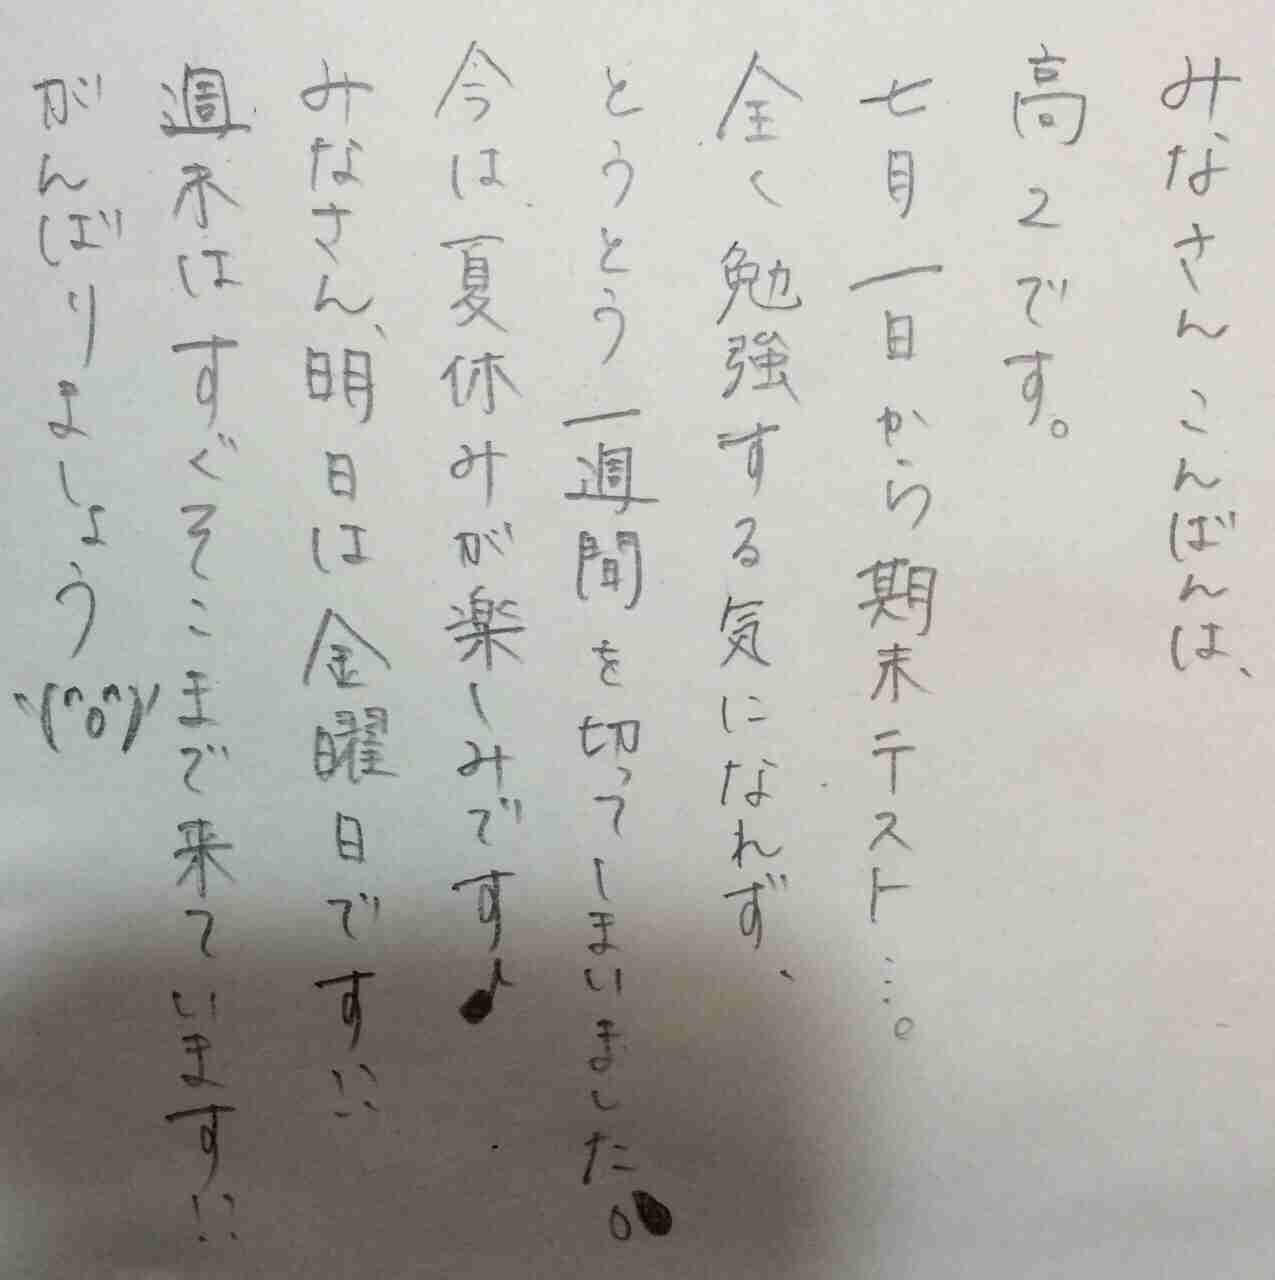 みなさんこんばんは、
高2です。
七月一日から期末テスト…。
全く勉強する気になれず、
とうとう一週間を切ってしまいました。
今は夏休みが楽しみです♪
みなさん、明日は金曜日です!!
週末はすぐそこまで来ています!!
がんばりましょう ヾ(^o^)ノ